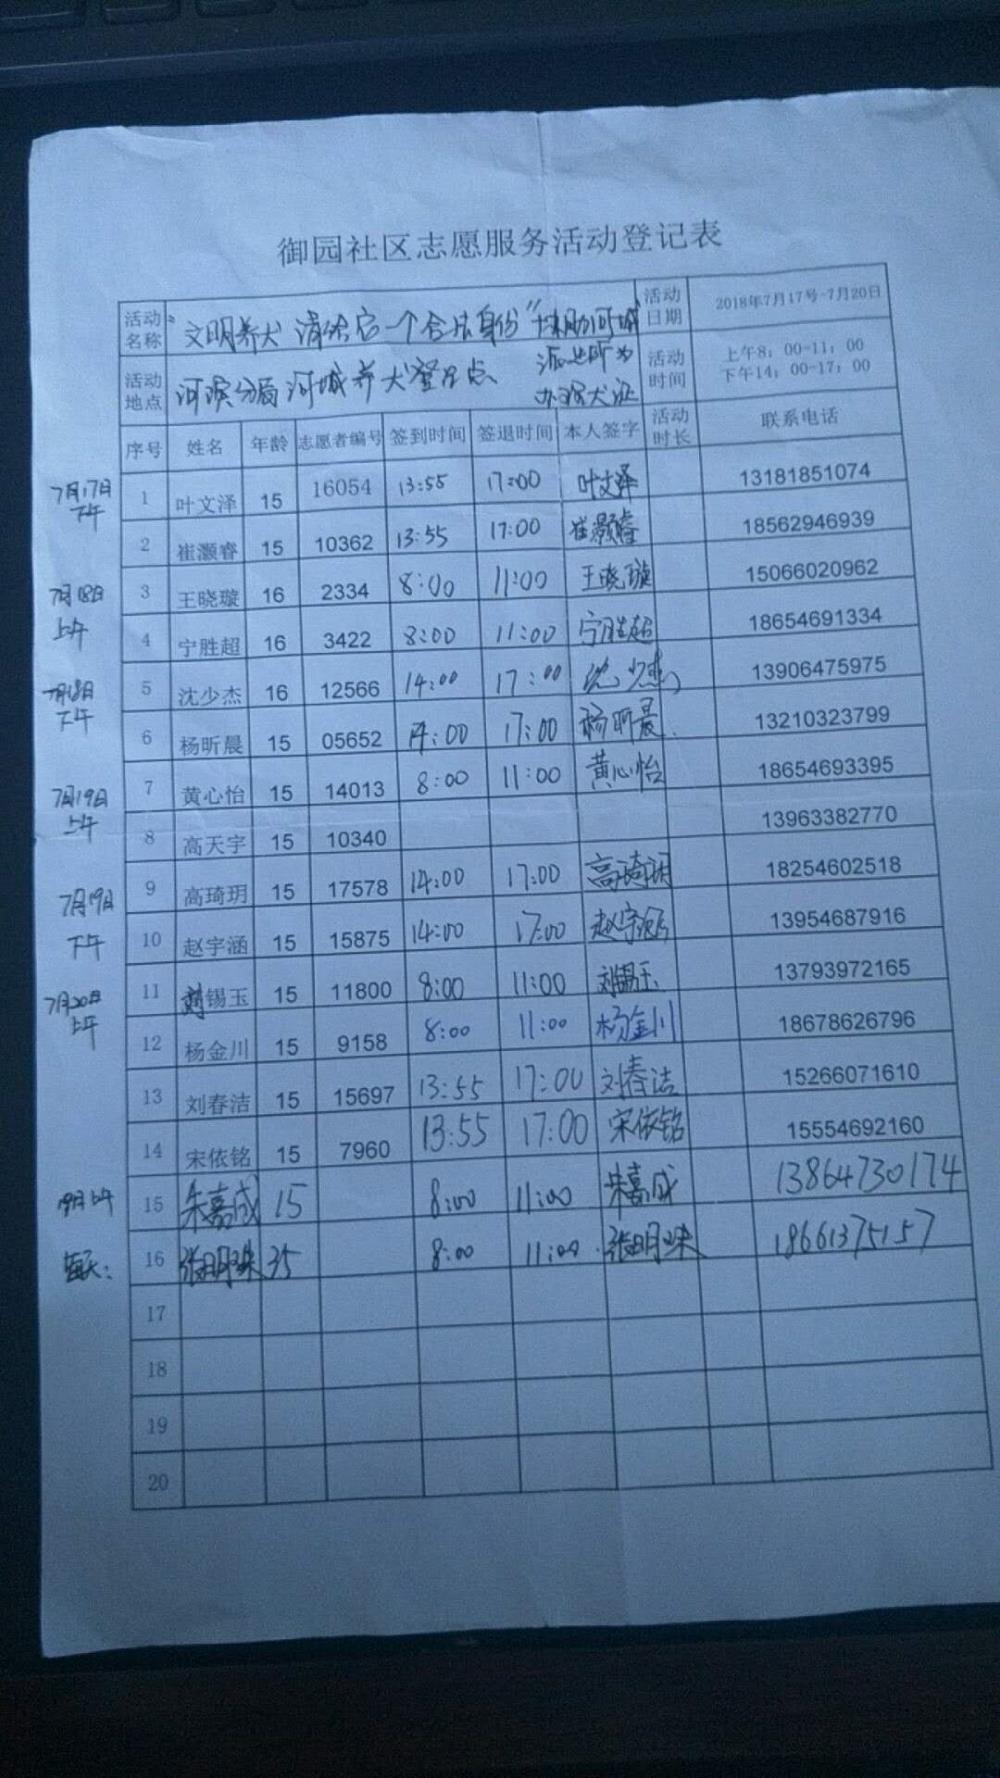 御园社区志愿服务活动登记表
活动名称 "文明养犬 请给它一个合法身份"协助河城派出所为办理犬证 活动日期 2018年7月17号-7月20日
活动地点 河滨分局河城养犬登记点 活动时间 上午8：00-11：00 下午14：00-17：00
序号 姓名 年龄 志愿者编号 签到时间 签退时间 本人签字 活动时长 联系电话
7月17日下午 1 叶文泽 15 16054 13:55 17:00 叶文泽 13181851074
2 崔灏睿 15 10362 13:55 17:00 崔灏睿 18562946939
7月18日上午 3 王晓璇 16 2334 8:00 11:00 王晓璇 15066020962
4 宁胜超 16 3422 8:00 11:00 宁胜超 18654691334
7月18日下午 5 沈少杰 16 12566 14:00 17:00 沈少杰 13906475975
6 杨昕晨 15 05652 14:00 17:00 杨昕晨 13210323799
7月19日上午 7 黄心怡 15 14013 8:00 11:00 黄心怡 18654693395
8 高天宇 15 10340 13963382770
7月19日下午 9 高琦玥 15 17578 14:00 17:00 高琦玥 18254602518
10 赵宇涵 15 15875 14:00 17:00 赵宇涵 13954687916
7月20日上午 11 刘锡玉 15 11800 8:00 11:00 刘锡玉 13793972165
12 杨金川 15 9158 8:00 11:00 杨金川 18678626796
13 刘春洁 15 15697 13:55 17:00 刘春洁 15266071610
14 宋依铭 15 7960 13:55 17:00 宋依铭 15554692160
19日上午 15 朱嘉成 15 8:00 11:00 朱嘉成 13864730174
16 张明珠 35 8:00 11:00 张明珠 18661375157
17
18
19
20